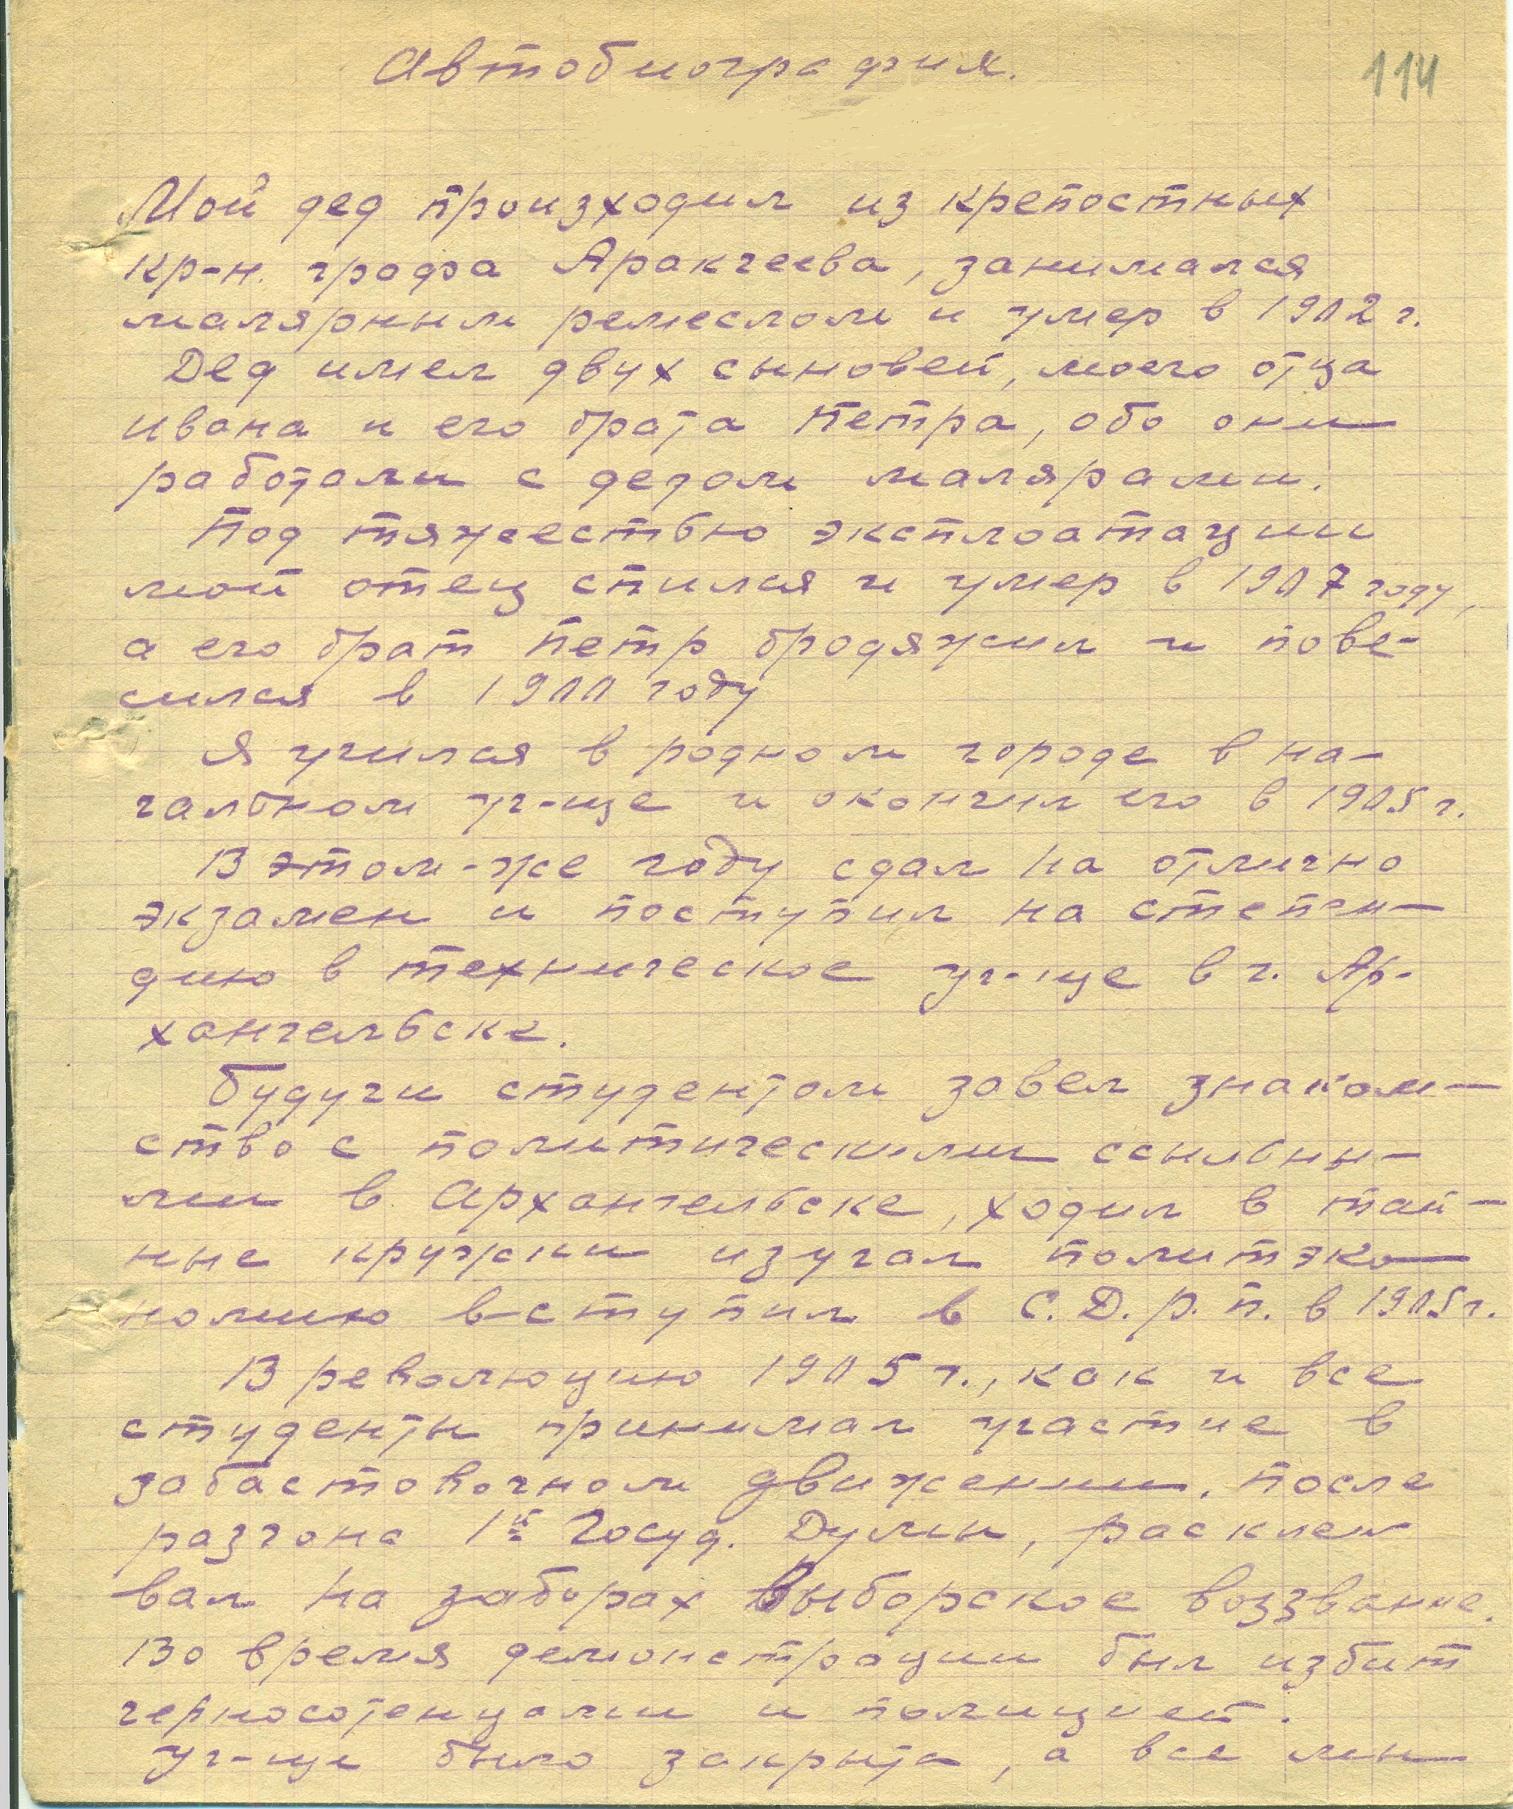 Автобиография.
114
Мой дед произходил из крепостных
кр-н. графа Аракчеева, занимался
малярным ремеслом и умер в 1902 г.
Дед имел двух сыновей, моего отца
Ивана и его брата Петра, оба они
работали с дедом малярами.
Под тяжестью эксплоатации
мой отец спился и умер в 1907 году,
а его брат Петр бродяжил и пове-
сился в 1900 году
Я учился в родном городе в на-
чальном уч-ще и окончил его в 1905 г.
В этом-же году сдал на отлично
экзамен и поступил на степен-
дию в техническое уч-ще в г. Ар-
хангельске.
Будучи студентом завел знаком-
ство с политическими ссыльны-
ми в Архангельске, ходил в тай-
ные кружки изучал политэко-
номию вступил в С.Д.р.п. в 1905 г.
В революцию 1905 г., как и все
студенты принимал участие в
забастовочном движении. После
разгона 1й Госуд. Думы, расклеи
вал на заборах Выборское воззвание.
Во время демонстрации был избит
черносотенцами и полицией.
Уч-ще было закрыто, а все мы